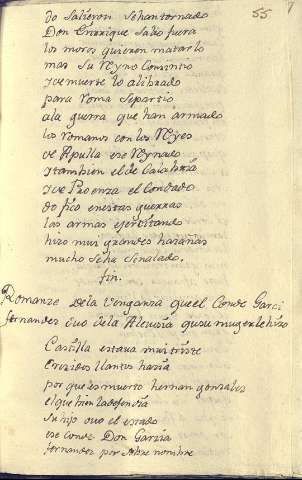 55
do salieron se han tornado
Don Enrrique salio fuera
los moros quieren matarlo
mas su Reyno
y de muerte lo a librado
para Roma se partio
a la guerra que han armado
los Romanos con los Reyes
de Apulla ese Reynado
y tambien el de Calabria
y de Proenza el Condado
do fizo en estas guerras
las armas ejercitando
hizo mui grandes hazañas
mucho se ha señalado.
fin.
Romanze de la venganza que el Conde Garci
fernandez ovo de la Alevosia que su muger le hizo
Castilla estava mui triste
crezidos llantos hazia
por que es muerto hernan gonzales
el que bien la defendia
su hijo ovo el estado
ese Conde Don Garzia
fernandez por sobre nombre